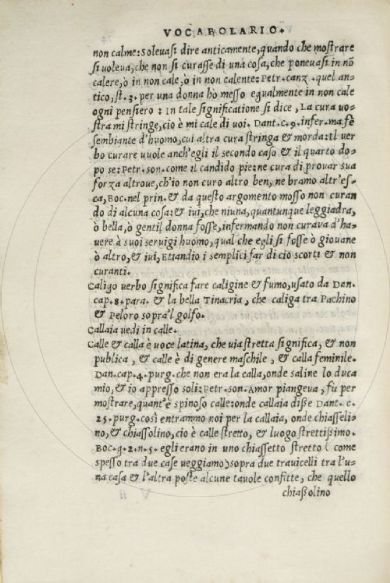 VOCABOLARIO.
non calme: Soleuasi dire anticamente, quando che mostrare
si voleua, che non si curasse di una cosa, che poneuasi in nõ
calere, ò in non cale, ò in non calente: Petr. canz. quel an-
tico, st. 3. per una donna ho messo egualmente in non cale
ogni pensiero: In tale significatione si dice, La cura uo-
stra mi stringe, cio è mi cale di voi. Dant. c. 9. infer. ma fè
sembiante d'huomo, cui altra cura stringa & morda: Il uer
bo curare vuole anch'egli il secondo caso & il quarto do-
po se: Petr. son. come il candido pie: ne cura di prouar sua
forza altroue, ch'io non curo altro ben, ne bramo altr'es-
ca, Boc. nel prin. & da questo argomento mosso non curan
do di alcuna cosa: & iui, che niuna, quantunque leggiadra,
ò bella, ò gentil donna fosse, infermando non curaua d'ha-
uere à suoi seruigi huomo, qual che egli si fosse ò giouane
ò altro, & iui, Ettandio i semplici far di cio scorti & non
curanti.
Caligo uerbo significa fare caligine & fumo, usato da Dan.
cap. 8. para. & la bella Tinacria, che caliga tra Pachino
& Peloro sopra'l golfo.
Callaia uedi in calle.
Calle & calla è uoce latina, che uia stretta significa, & non
publica, & calle è di genere maschile, & calla feminile.
Dan. cap. 4. purg. che non era la calla, onde saline lo duca
mio, & io appresso soli: Petr. son. Amor piangeua, fu per
mostrare, quant'è spinoso calle: onde callaia disse Dant. c.
25. purg. cosi entrammo noi per la callaia, onde chiasseli-
no, & chiassolino, cio è calle stretto, & luogo strettissimo.
Boc. g. 2. n. 5. egli erano in uno chiassetto stretto (come
spesso tra due case ueggiamo) sopra due trauicelli tra l'u-
na casa & l'altra poste alcune tauole confitte, che quello
chiassolino